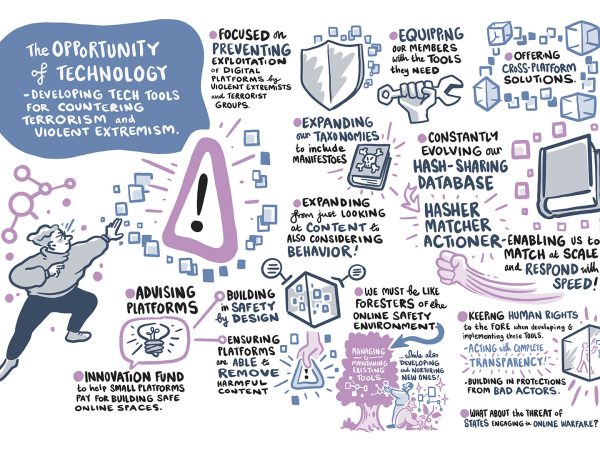 The OPPORTUNITY
of TECHNOLOGY
-DEVELOPING TECH TOOLS
FOR COUNTERING
TERRORISM and
VIOLENT EXTREMISM.
FOCUSED on
PREVENTING
EXPLOITATION
OF DIGITAL
PLATFORMS by
VIOLENT EXTREMISTS
AND TERRORIST
GROUPS.
EQUIPPING
OUR MEMBERS
WITH THE TOOLS
they NEED
OFFERING
CROSS-PLATFORM
SOLUTIONS.
EXPANDING
OUR TAXONOMIES
to INCLUDE
MANIFESTOES
CONSTANTLY
EVOLVING OUR
HASH-SHARING
DATABASE
HASHER
MATCHER
ACTIONER-
ENABLING US to
MATCH AT SCALE
and RESPOND with
SPEED!
EXPANDING
from JUST LOOKING
at CONTENT to
ALSO CONSIDERING
BEHAVIOR!
!
ADVISING
PLATFORMS
INNOVATION FUND
to HELP SMALL PLATFORMS
PAY FOR BUILDING SAFE
ONLINE SPACES.
BUILDING
in SAFETY
by DESIGN
ENSURING
PLATFORMS
are ABLE to
REMOVE
HARMFUL
CONTENT
!
WE MUST BE LIKE
FORESTERS OF the
ONLINE SAFETY
ENVIRONMENT
MANAGING
&
MAINTAINING
EXISTING
TOOLS
While also
DEVELOPING
and NURTURING
NEW ONES!
KEEPING HUMAN RIGHTS
to the FORE when developing &
implementing these TOOLS.
-ACTING with COMPLETE
TRANSPARENCY!
-BUILDING IN PROTECTIONS
FROM BAD ACTORS.
WHAT ABOUT the THREAT OF
STATES ENGAGING in ONLINE WARFARE?